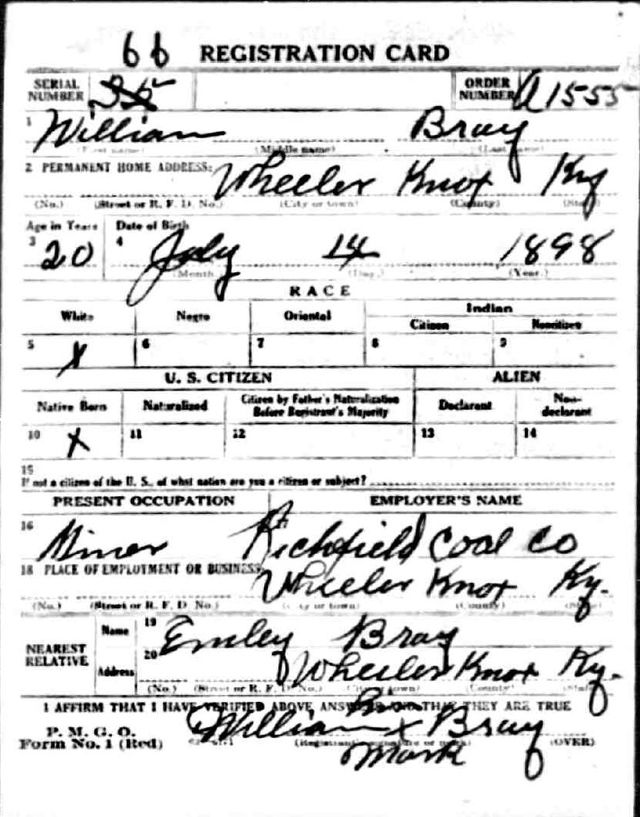 66 REGISTRATION CARD
SERIAL NUMBER ORDER NUMBER A1555
1 William Bray
(First name) (Middle name) (Last name)
2 PERMANENT HOME ADDRESS: Wheeler Knox Ky
(No.) (Street or R. F. D. No.) (City or town) (County) (State)
Age in Years Date of Birth
3 20 4 July 14 1898
(Month.) (Day.) (Year.)
RACE
White Negro Oriental Indian
Citizen Noncitizen
5 X 6 7 8 9
U. S. CITIZEN ALIEN
Native Born Naturalized Citizen by Father's Naturalization Before Registrant's Majority Declarant Non-declarant
10 X 11 12 13 14
15
If not a citizen of the U. S., of what nation are you a citizen or subject?
PRESENT OCCUPATION EMPLOYER'S NAME
16 Miner 17 Richfield Coal Co
18 PLACE OF EMPLOYMENT OR BUSINESS: Wheeler Knox Ky.
(No.) (Street or R. F. D. No.) (City or town) (County) (State)
NEAREST RELATIVE Name 19 Emley Bray
Address 20 Wheeler Knox Ky.
(No.) (Street or R. F. D. No.) (City or town) (County) (State)
I AFFIRM THAT I HAVE VERIFIED ABOVE ANSWERS AND THAT THEY ARE TRUE
P. M. G. O.
Form No. 1 (Red) William X Bray
(Registrant's signature or mark) (OVER)
Mark